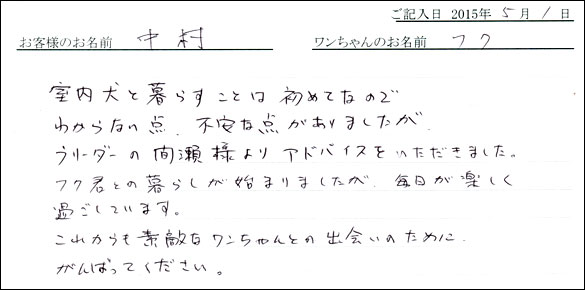 ご記入日 2015年 5月 1日
お客様のお名前 中村 ワンちゃんのお名前 フク
室内犬と暮らすことは初めてなので
わからない点、不安な点がありましたが、
うリーダーの間瀬様よりアドバイスをいただきました。
フク君との暮らしが始まりましたが、毎日が楽しく
過ごしています。
これからも素敵なワンちゃんとの出会いのために
がんばってください。